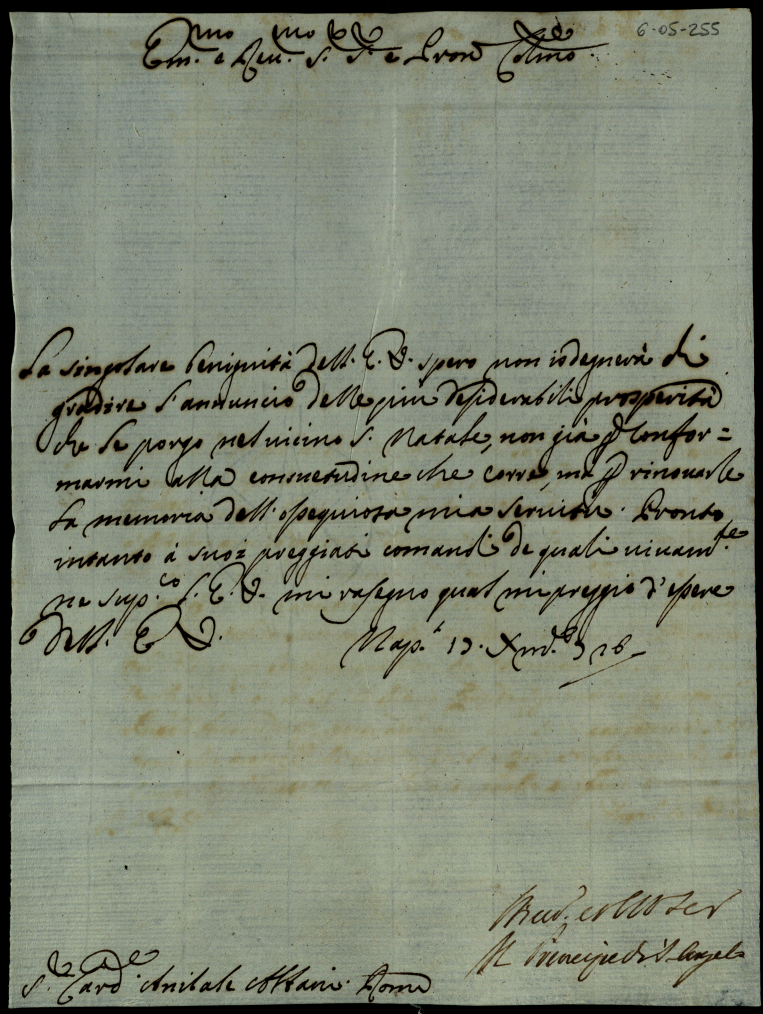 6-05-255
Em.mo e Rev.mo S.r S.r e Pron Colmo
La singolare benignità dell' E. V. spero non isdegnerà di
gradire l'annuncio delle più desiderabili prosperità
che le porgo nel vicino S. Natale, non già p confor=
marmi alla consuetudine che corre, ma p rinovarle
la memoria dell' ossequiosa mia servitù. Pronto
intanto à suoi preggiati comandi de quali vivam.te
ne sup.co l' E. V. mi rasegno qual mi preggio d'essere
Dell' E. V. Nap.li 13. Xmb.e
Il Principe di S. Angelo
S.r Card.le Anibale Albani. Roma